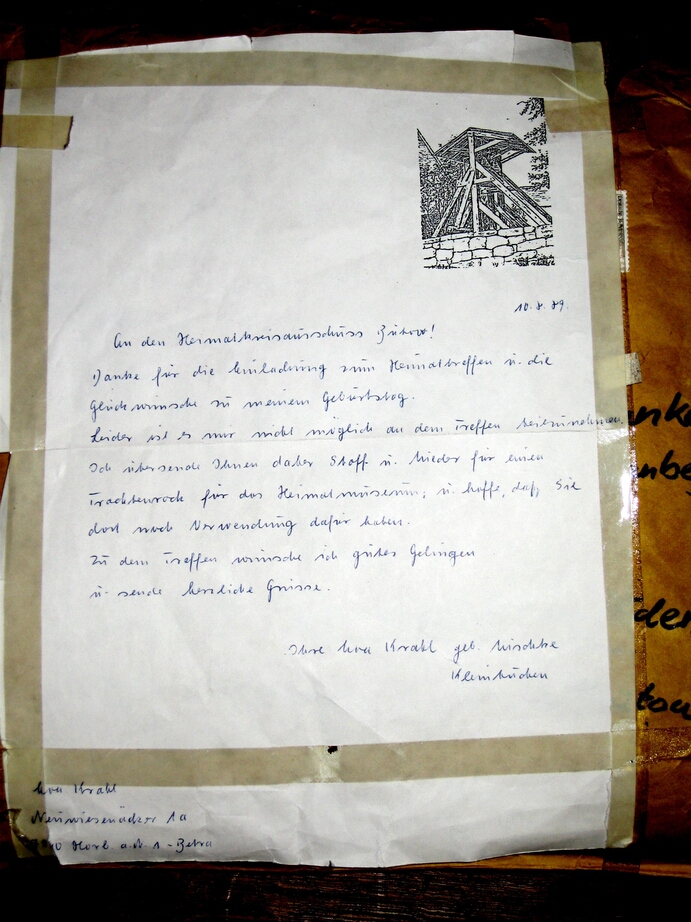 10.8.89.
An den Heimatkreisausschuss Bütow!
Danke für die Einladung zum Heimattreffen u. die
Glückwünsche zu meinem Geburtstag.
Leider ist es mir nicht möglich an dem Treffen teilzunehmen.
Ich übersende Ihnen daher Stoff u. Mieder für einen
Trachtenrock für das Heimatmuseum; u. hoffe, daß Sie
dort noch Verwendung dafür haben.
Zu dem Treffen wünsche ich gutes Gelingen
u. sende herzliche Grüsse.
Ihre Eva Krahl geb.
Eva Krahl
Neuwiesenäcker 1a
Horb a.N. 1 -